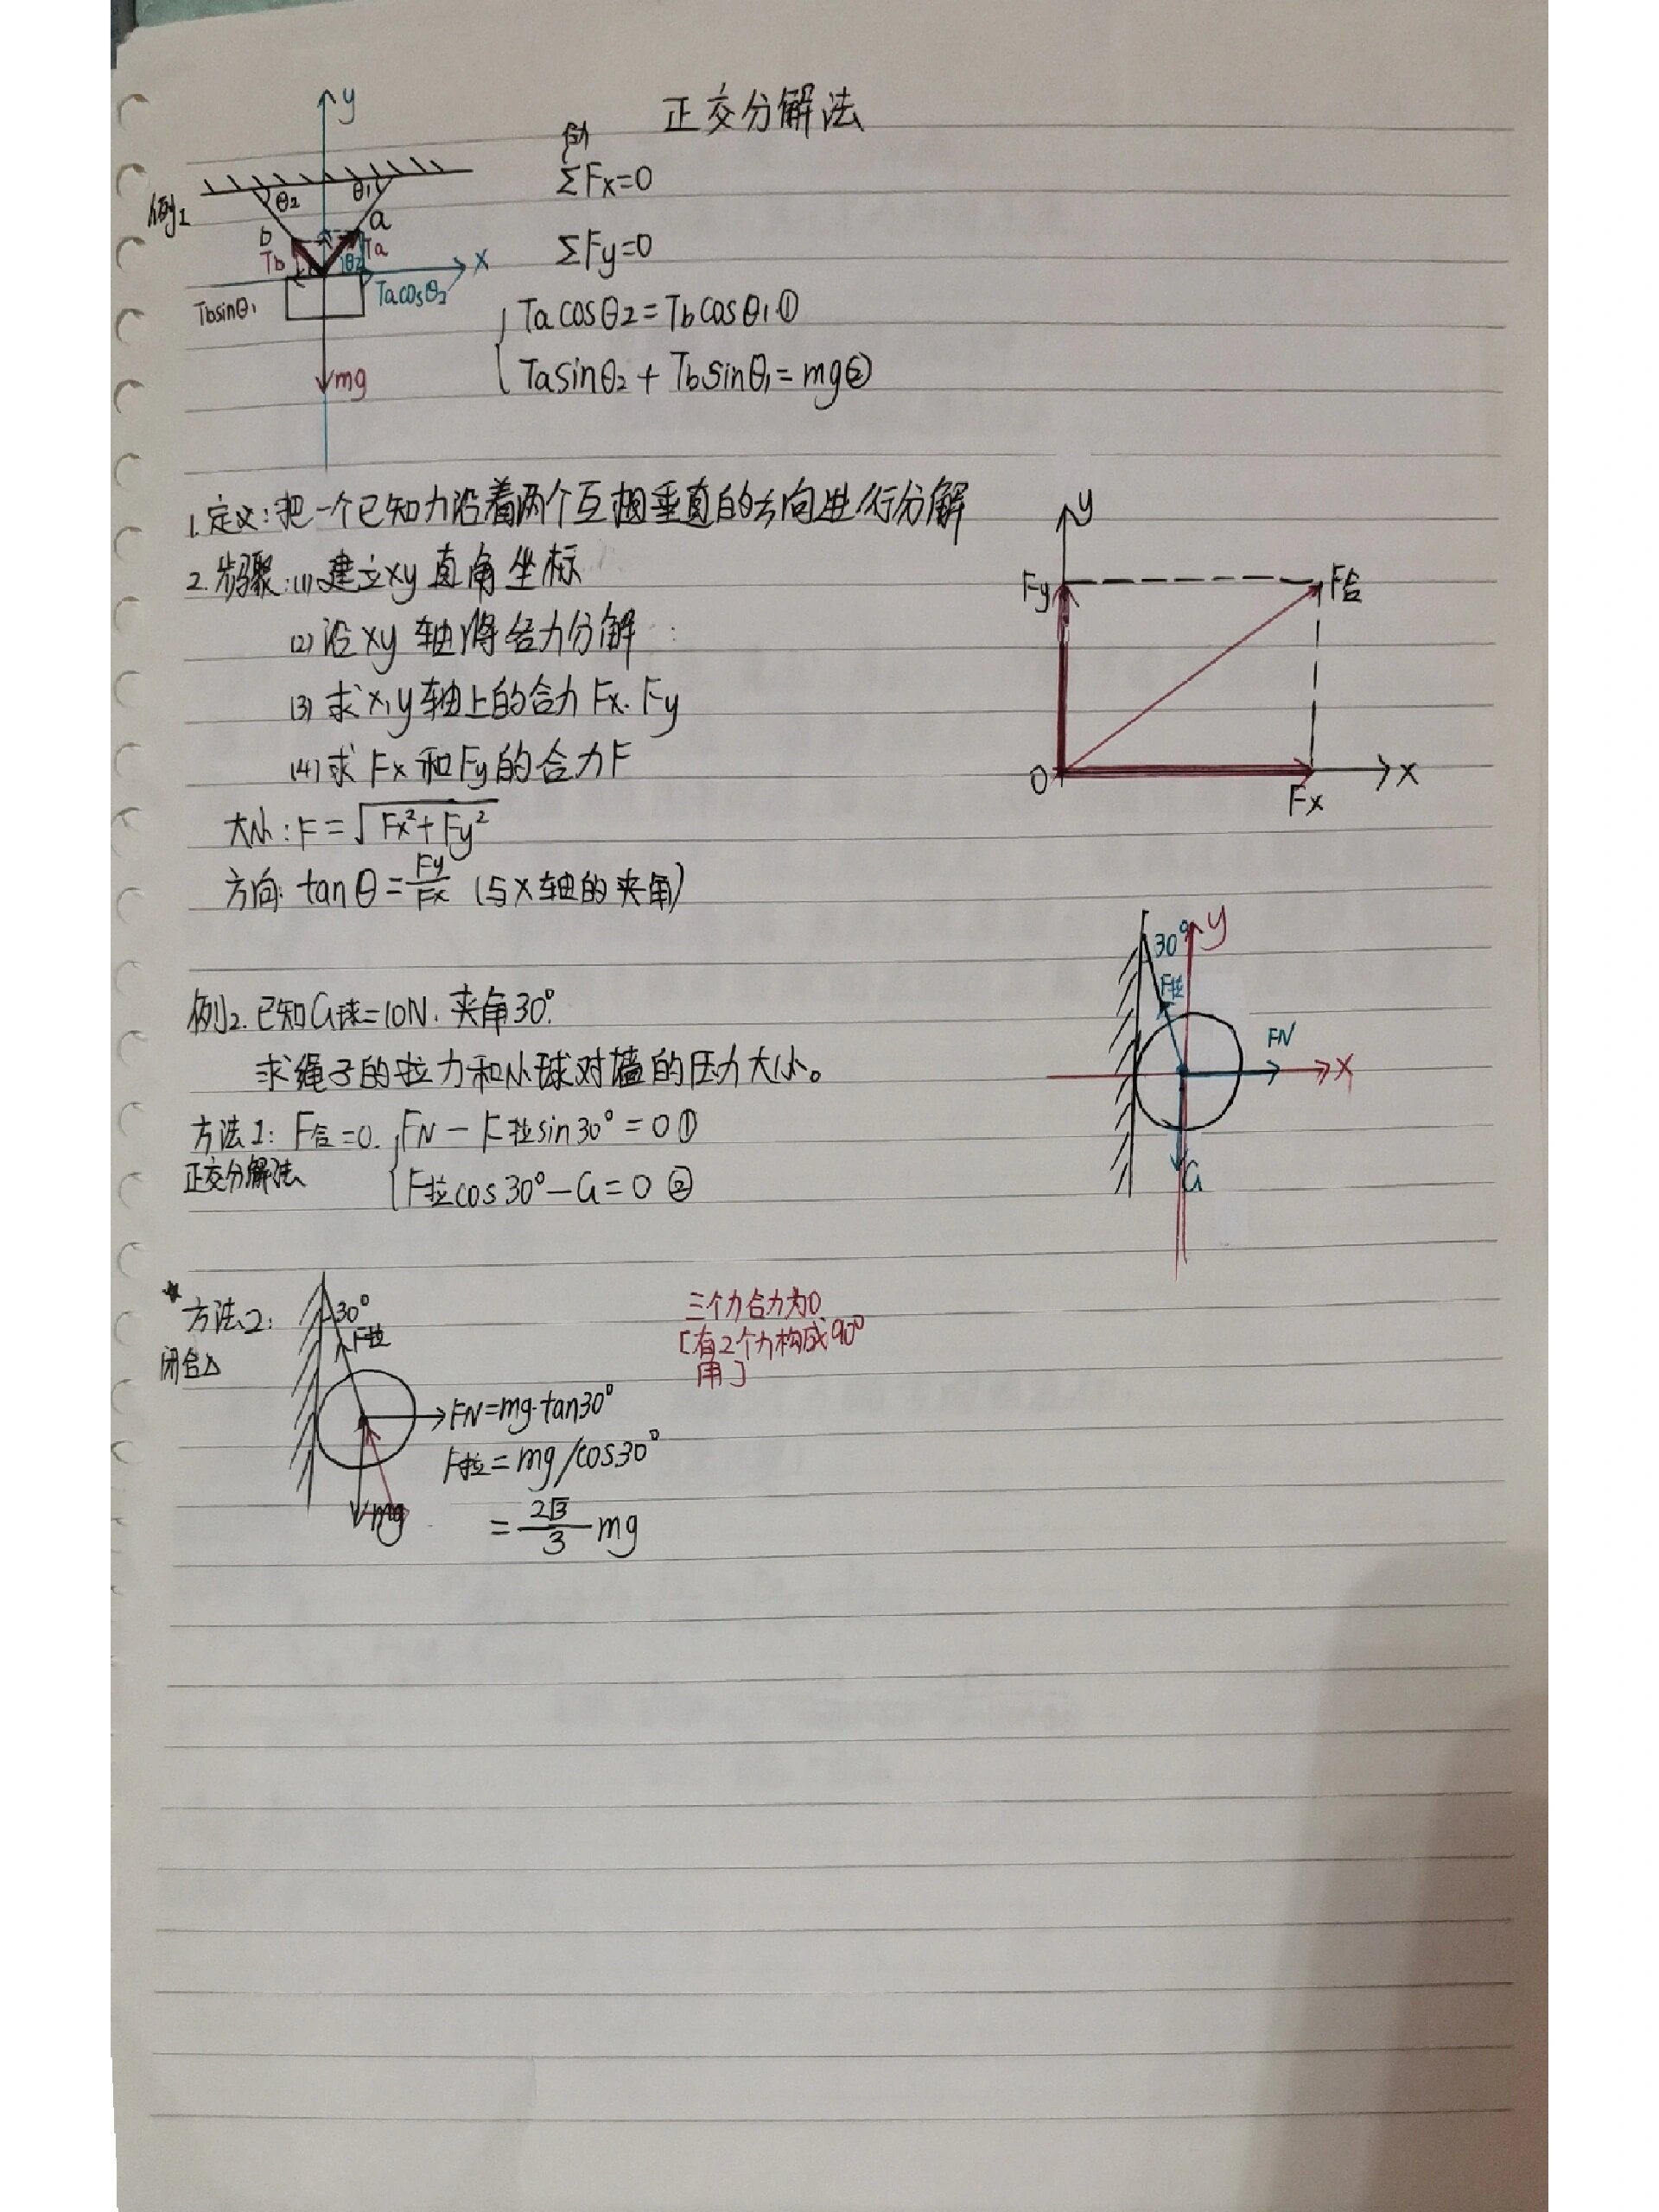 正交分解法
例1
y
θ2
θ1
b
a
Tb
Ta
θ2
x
Tbsinθ1
Tacosθ2
mg
ΣFx=0
ΣFy=0
Tacosθ2=Tbcosθ1①
Tasinθ2+Tbsinθ1=mg②
1.定义:把一个已知力沿着两个互相垂直的方向进行分解
2.步骤:(1)建立xy直角坐标
(2)沿xy轴将各力分解
(3)求x,y轴上的合力Fx.Fy
(4)求Fx和Fy的合力F
大小:F=√Fx²+Fy²
方向:tanθ=Fy/Fx (与x轴的夹角)
y
Fy
F合
O
Fx
x
例2.已知G球=10N.夹角30°.
求绳子的拉力和小球对墙的压力大小。
方法1:F合=0. FN-F拉sin30°=0①
正交分解法 F拉cos30°-G=0②
30°
y
F拉
FN
x
G
★方法2:
闭合△
30°
F拉
FN=mg·tan30°
F拉=mg/cos30°
=2√3/3 mg
mg
三个力合力为0
[有2个力构成90°
角]